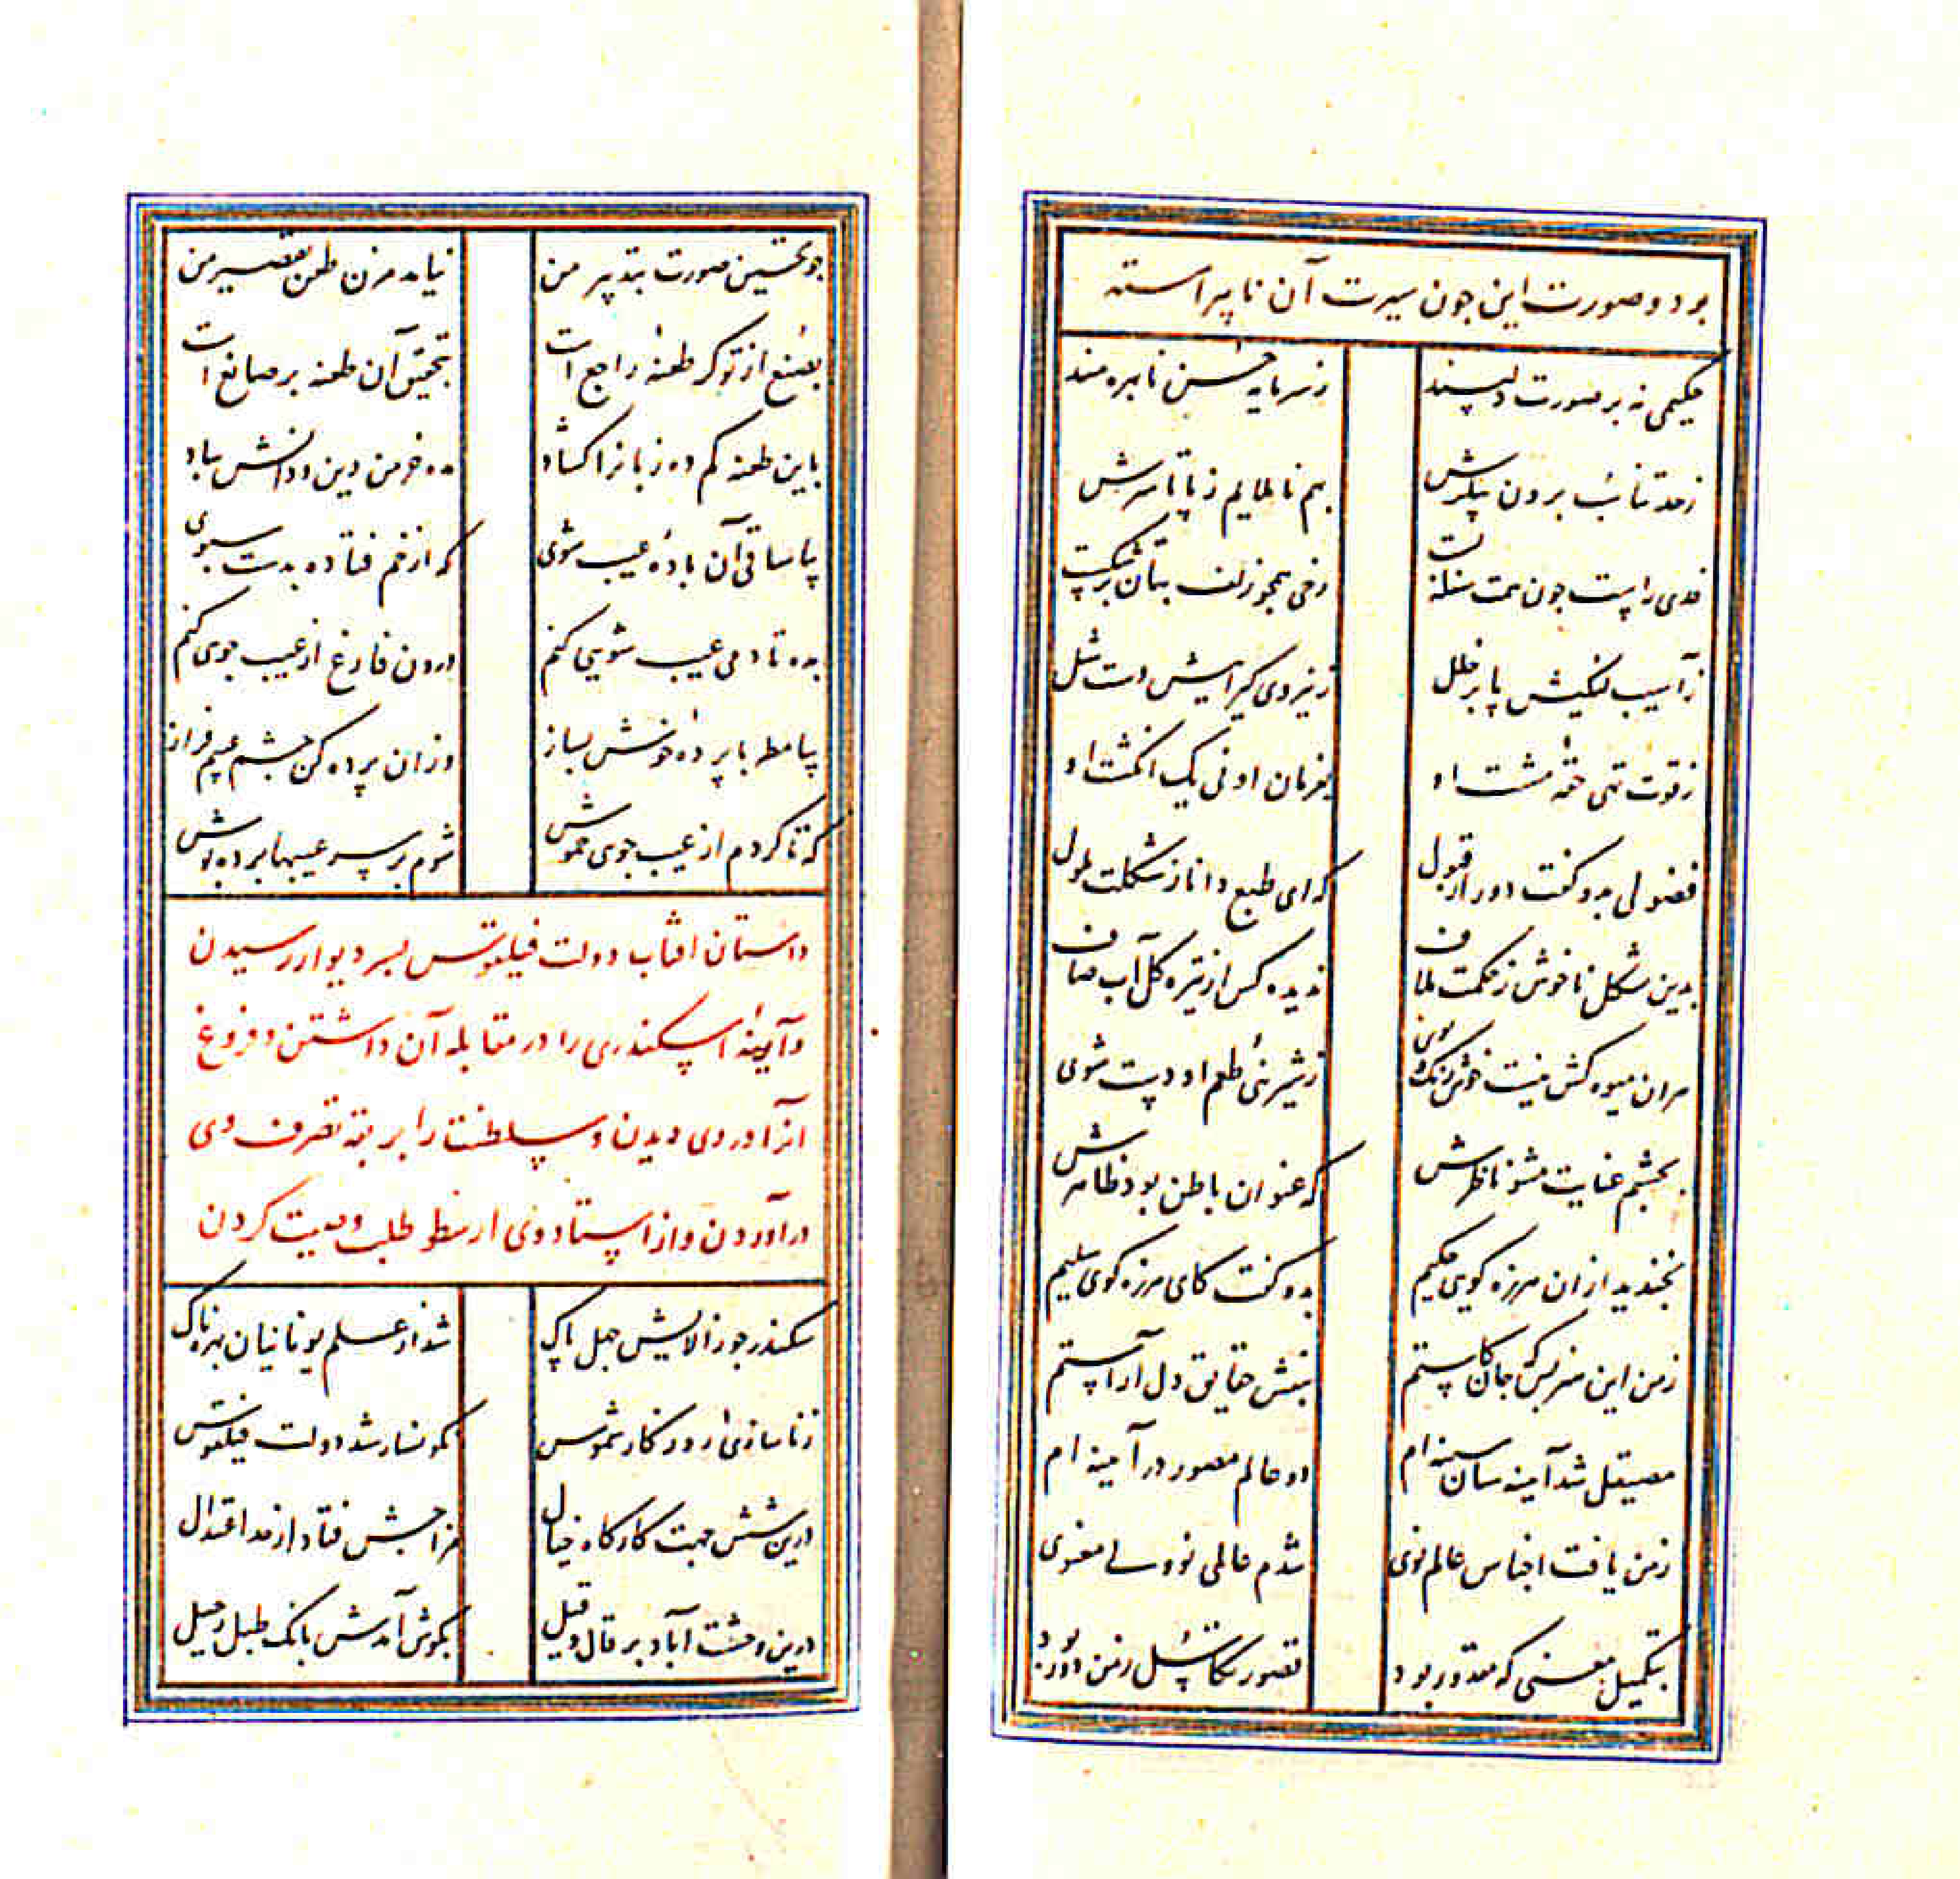 بود و صورت این جون سیرت آن ناپیراسته
حکیمی نه بر صورت دلپسند ز سرمایه حسن نابهره مند
ز حد تناسب برون پیکرش بهم ناملایم ز پا تا سرش
قدی راپست جون همت سفله پست رخی همچو زلف بتان پر شکست
ز آسیب لنگیش پا پر خلل ز نیروی گیراییش دست شل
ز قوت تهی حقهٔ مشت او بفرمان او نی یک انکشت او
فضولی بدو کفت دور از قبول که ای طبع دانا ز شکلت ملول
بدین شکل ناخوش ز حکمت ملاف ندیده کس از تیره کل آب صاف
هر ان میوه کش نیست خوش رنک و بوی ز شیرینی طعم او دست شوی
بچشم عنایت مشو ناظرش که عنوان باطن بود ظاهرش
بخندید از ان هرزه کوی حکیم بدو کفت کای هرزه کوی سلیم
زمن این هنر بس که جان کاستم بنقش حقایق دل آراستم
مصیقل شد آینه سان سینه ام دو عالم مصور در آیینه ام
زمن یافت اجناس عالم نوی شدم عالمی نو ولی معنوی
بتکمیل معنی که مقدور بود تصور تکاسل زمن دور بود
جو تحسین صورت بتدبیر من نیامد مزن طعن تقصیر من
بصنع از تو کر طعنهٔ راجع است بتحقیق آن طعنه بر صانع است
باین طعنه کم ده زبانرا کشاد مده خرمن دین و دانش بباد
بیا ساقی آن بادهٔ عیب شوی که از خم فتاده بدست سبوی
بده تا دمی عیب شویی کنم درون فارغ از عیب جوی کنم
بیا مطربا پردهٔ خوش بساز وزان پرده کن چشم عیبم فراز
که تا کردم از عیب جوی خموش شوم بر سر عیبها پرده پوش
داستان افتاب دولت فیلقوس بسر دیوار رسیدن
و آیینهٔ اسکندری را در مقابله آن داشتن و فروغ
انرا در وی دیدن و سلطنت را بربقه تصرف وی
در آوردن و از استاد وی ارسطو طلب وصیت کردن
سکندر جو ز الایش جهل پاک شد از علم یونانیان بهره ناک
ز ناسازی روزکار شموس نکونسار شد دولت فیلقوس
درین شش جهت کارکاه خیال مزاجش فتاد از حد اعتدال
درین وحشت آباد پر قال و قیل بکوش آمدش بانک طبل رحیل